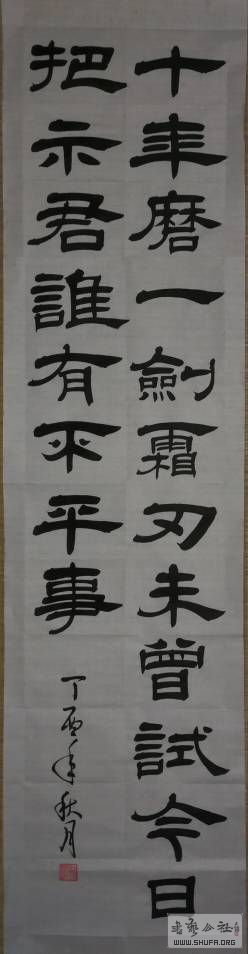 十年磨一劍霜刃未曾試今日
把示君誰有不平事
丁酉年秋月
書法公社
WWW.SHUFA.ORG